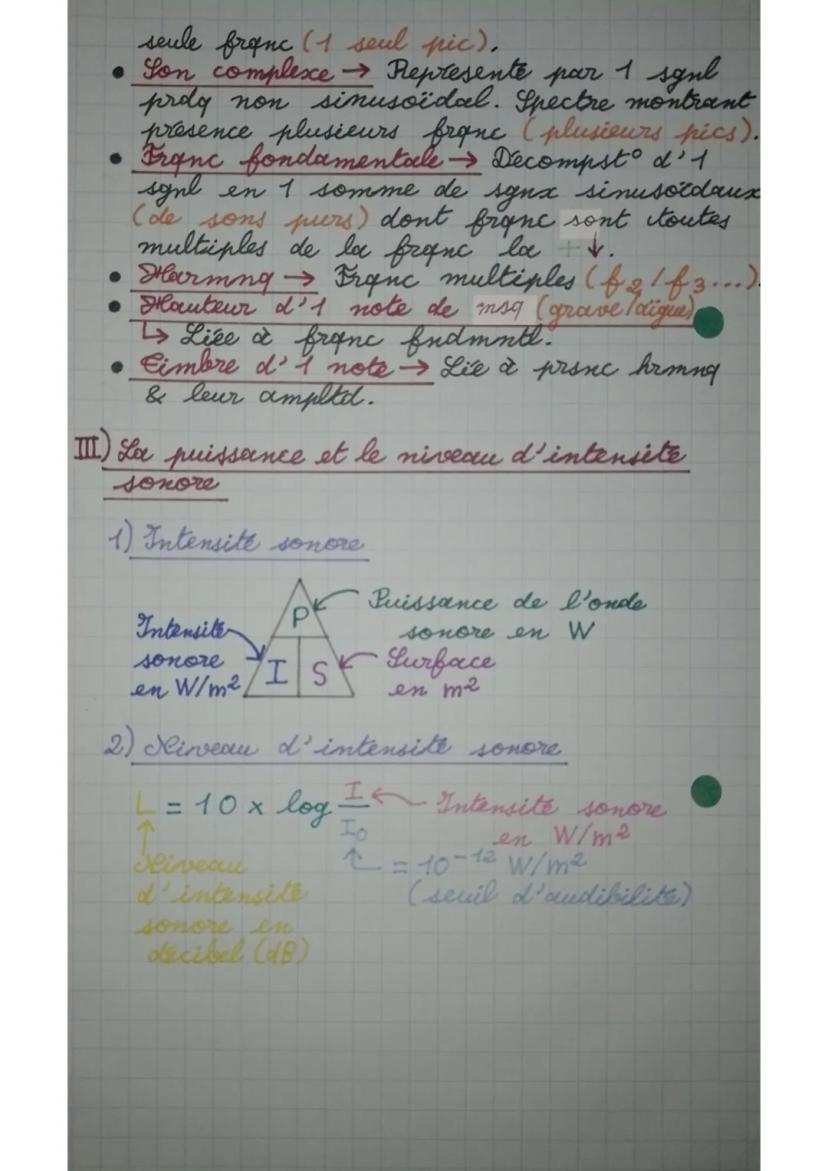 seule frqnc (1 seul pic).
• Son complexe → Représenté par 1 sgnl
prdq non sinusoïdal. Spectre montrant
présence plusieurs frqnc (plusieurs pics).
• Frqnc fondamentale → Décompst° d'1
sgnl en 1 somme de sgnx sinusoïdaux
(de sons purs) dont frqnc sont toutes
multiples de la frqnc la + ↓.
• Harmnq → Frqnc multiples (f2/f3...).
• Hauteur d'1 note de msq (grave/aïgue)
↳ Liée à frqnc fndmntl.
• Timbre d'1 note → Lié à prsnc hrmnq
& leur ampltd.
III) La puissance et le niveau d'intensité
sonore
1) Intensité sonore
P
Puissance de l'onde
sonore en W
Intensité
sonore
en W/m²
I
S
Surface
en m²
2) Niveau d'intensité sonore
L = 10 x log I/I₀
Intensité sonore
en W/m²
= 10⁻¹² W/m²
(seuil d'audibilité)
Niveau
d'intensité
sonore en
décibel (dB)